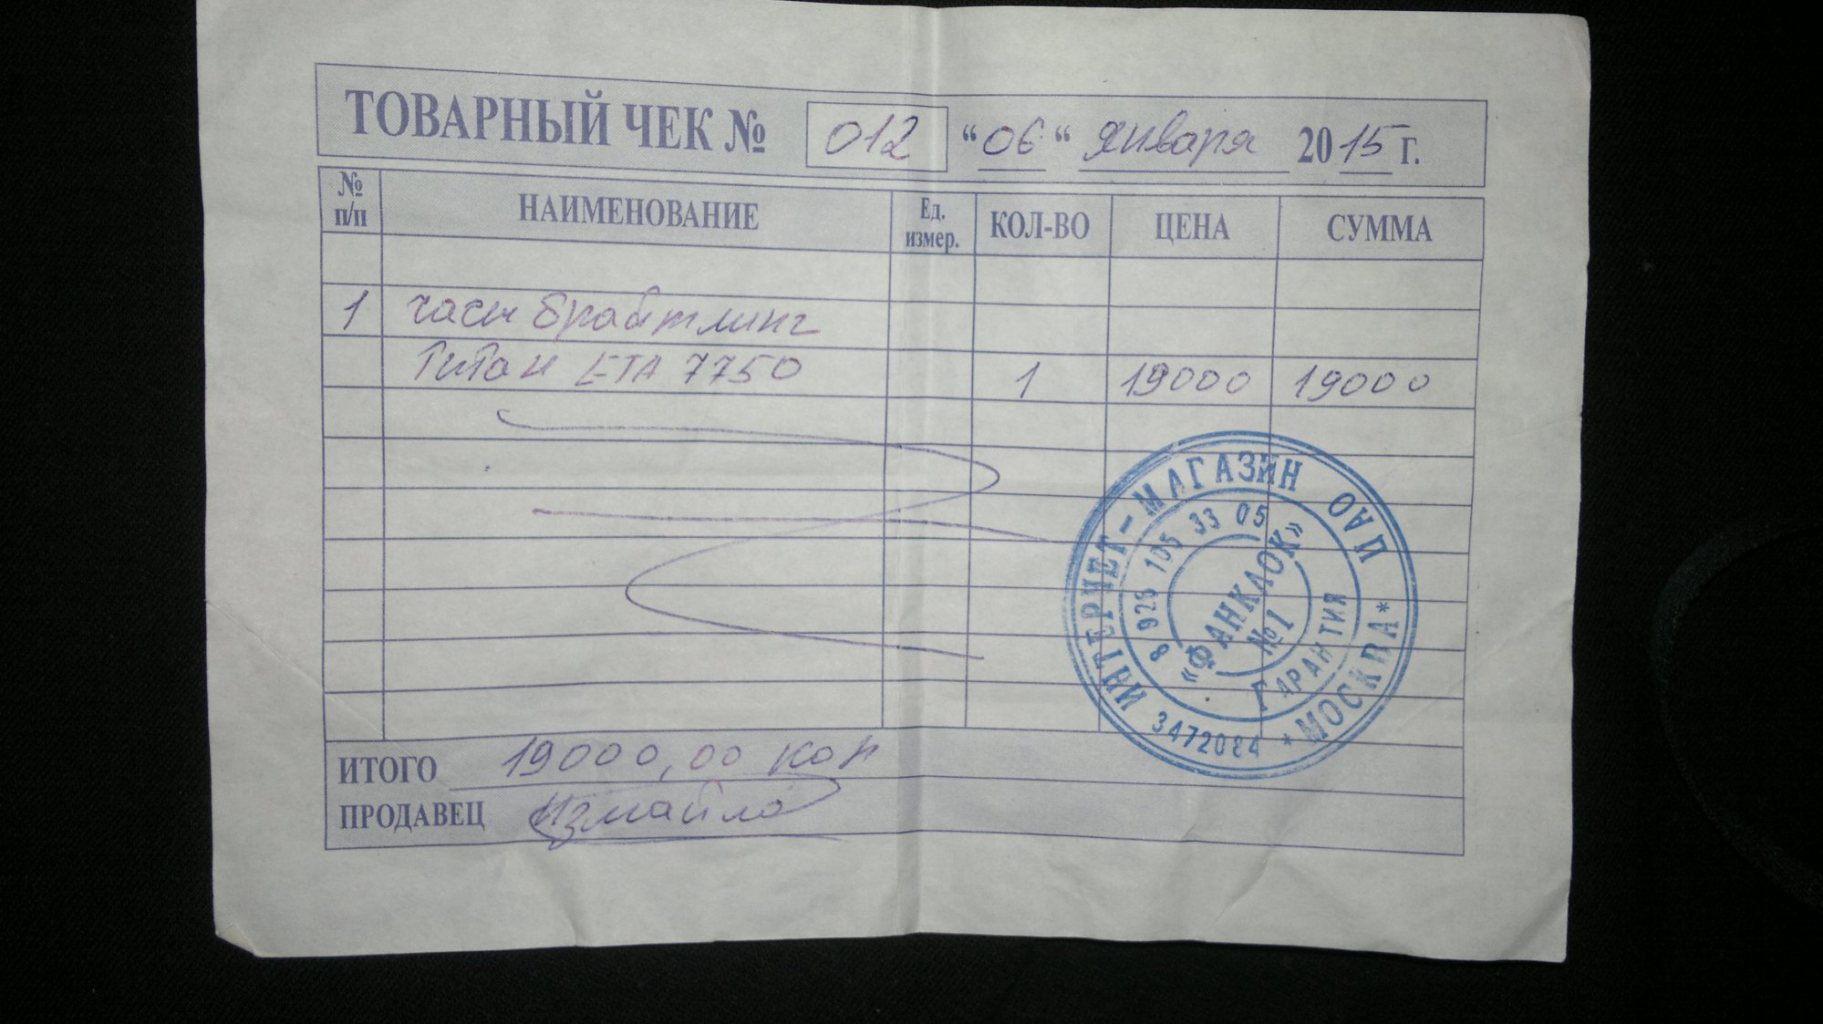 ТОВАРНЫЙ ЧЕК № 012 "06" января 2015 г.
№ п/п НАИМЕНОВАНИЕ Ед. измер. КОЛ-ВО ЦЕНА СУММА
1 часы брайтлинг
Титан ETA 7750 1 19000 19000
ИНТЕРНЕТ-МАГАЗИН ОАП
8 926 105 33 05
«ФАНКЛОК»
№1
ГАРАНТИЯ
*МОСКВА*
3472084
ИТОГО 19000,00 коп
ПРОДАВЕЦ Измайло